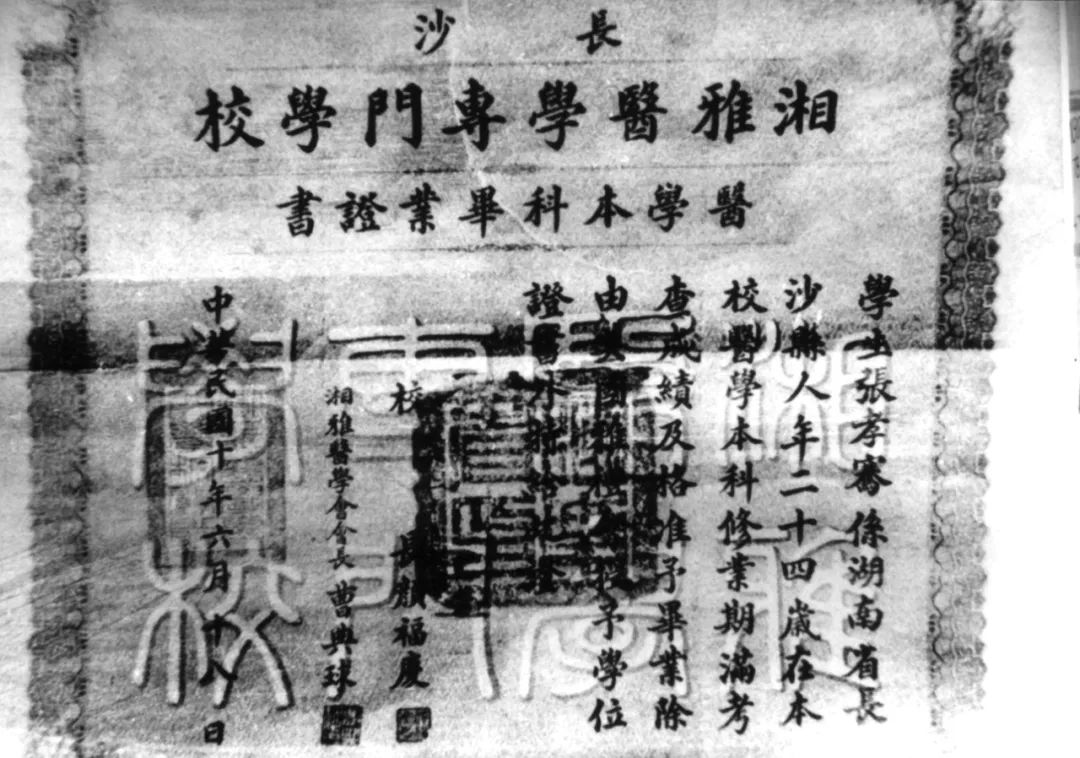 長沙
湘雅醫學專門學校
醫學本科畢業證書
學生張孝騫係湖南省長
沙縣人年二十四歲在本
校醫學本科修業期滿考
查成績及格准予畢業除
由美國雅禮會授予學位
證書外特給此證
校長顏福慶
湘雅醫學會會長曹典球
中華民國十年六月十八日